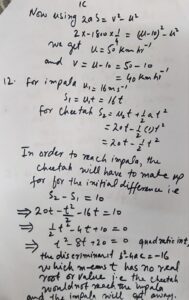 1C
Now using 2as = v² - u²
2x-1800x1/4 = (u-10)² - u²
we get u = 50 km hr⁻¹
and v = u-10 = 50-10
= 40 km hr⁻¹
12. For impala u₁ = 16ms⁻¹
S₁ = u₁t = 16t
for cheetah S₂ = u₂t + 1/2 at²
= 20t - 1/2 (1) t²
= 20t - 1/2 t²
In order to reach impala, the
cheetah will have to make up
for for the initial difference i.e
S₂ - S₁ = 10
⇒ 20t - t²/2 - 16t = 10
⇒ 1/2 t² - 4t + 10 = 0
⇒ t² 8t + 20 = 0 quadratic int,
the discriminant b² 4ac = -16
which means t has no real
root or value i.e the cheetah
would not reach the impala
and the impala will get away.